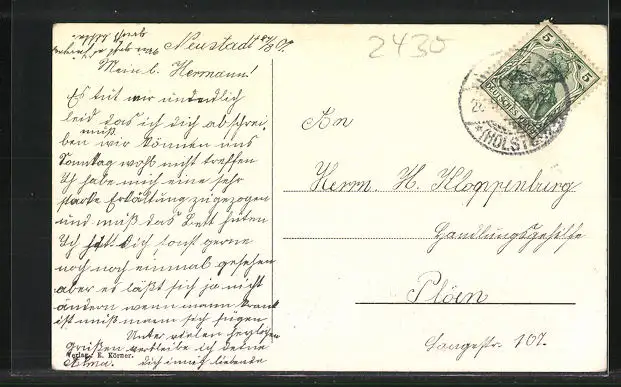 Neustadt
2430
Mein l. Hermann!
Es tut mir unendlich
leid das ich dich abschrei-
ben muß wir können uns
Sonntag wohl nicht treffen
Ich habe mich eine sehr
starke Erkältung zugezogen
und muß das Bett hüten
Ich hätt dich sonst gerne
noch noch einmal gesehen
aber es läßt sich ja nicht
ändern wenn mann krank
ist muß mann sich fügen
Unter vielen herzlichen
Grüßen verbleibe ich deine
dich innig liebende
Alma.
Verlag: E. Körner.
DEUTSCHES REICH
5 5
(HOLSTEIN)
An
Herrn H. Kloppenburg
Handlungsgehilfe
Plöen
Langestr. 107.